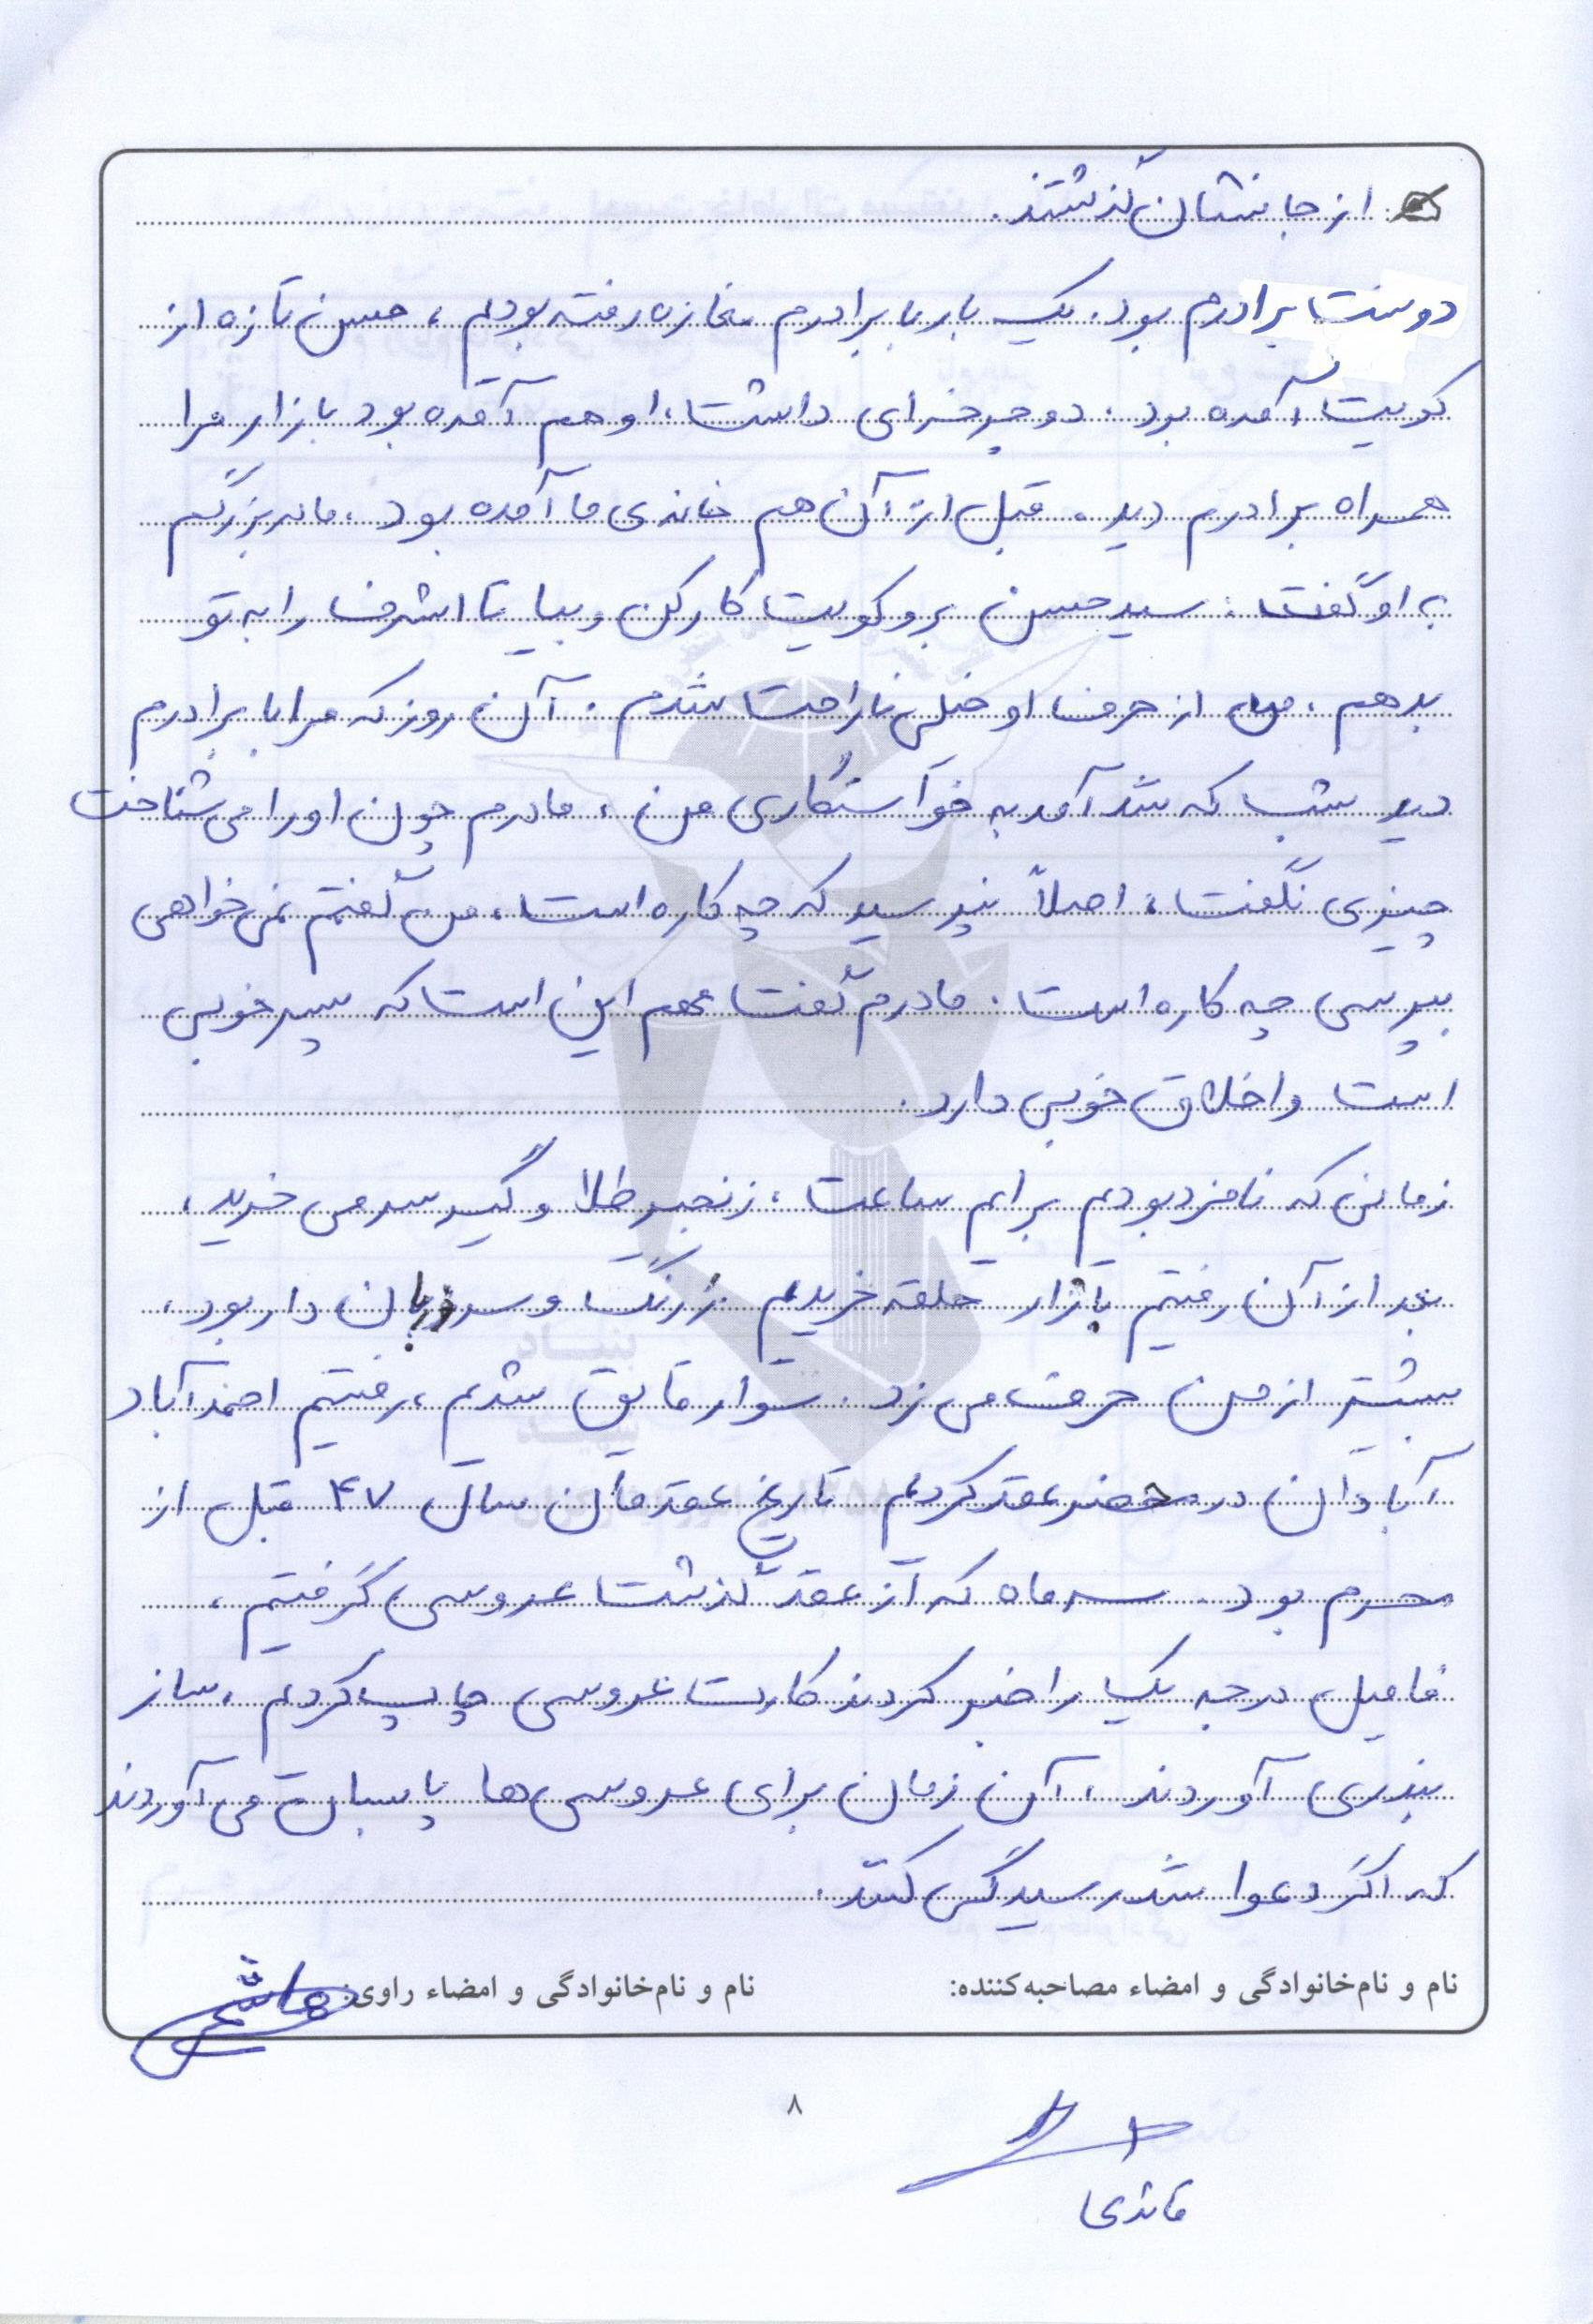 از جانشان گذشتند.
دوست برادرم بود. یک بار با برادرم مغازه رفته بودیم، حسن تازه از
کویت آمده بود. دوچرخه‌ای داشت، او هم آمده بود بازار مرا
همراه برادرم دید. قبل از آن هم خانه‌ی ما آمده بود، مادربزرگم
به او گفت: سید حسن برو کویت کار کن و بیا تا اشرف را به تو
بدهم، من از حرف او خیلی ناراحت شدم. آن روز که مرا با برادرم
دید شب که شد آمد به خواستگاری من، مادرم چون او را می‌شناخت
چیزی نگفت، اصلاً نپرسید که چه کاره است، من گفتم نمی‌خواهی
بپرسی چه کاره است. مادرم گفت مهم این است که پسر خوبی
است و اخلاق خوبی دارد.
زمانی که نامزد بودیم برایم ساعت، زنجیر طلا و گیر سر می‌خرید،
بعد از آن رفتیم بازار حلقه خریدیم. زرنگ و سر و زبان دار بود،
بیشتر از من حرف می‌زد. سوار قایق شدیم، رفتیم احمدآباد
آبادان در محضر عقد کردیم تاریخ عقدمان سال ۴۷ قبل از
محرم بود. سه ماه که از عقد گذشت عروسی گرفتیم،
فامیل درجه یک را خبر کردند کارت عروسی چاپ کردیم، ساز
بندری آوردند، آن زمان برای عروسی‌ها پاسبان می‌آوردند
که اگر دعوا شد رسیدگی کند.
نام و نام‌خانوادگی و امضاء مصاحبه‌کننده: نام و نام‌خانوادگی و امضاء راوی: هاشمی
۸